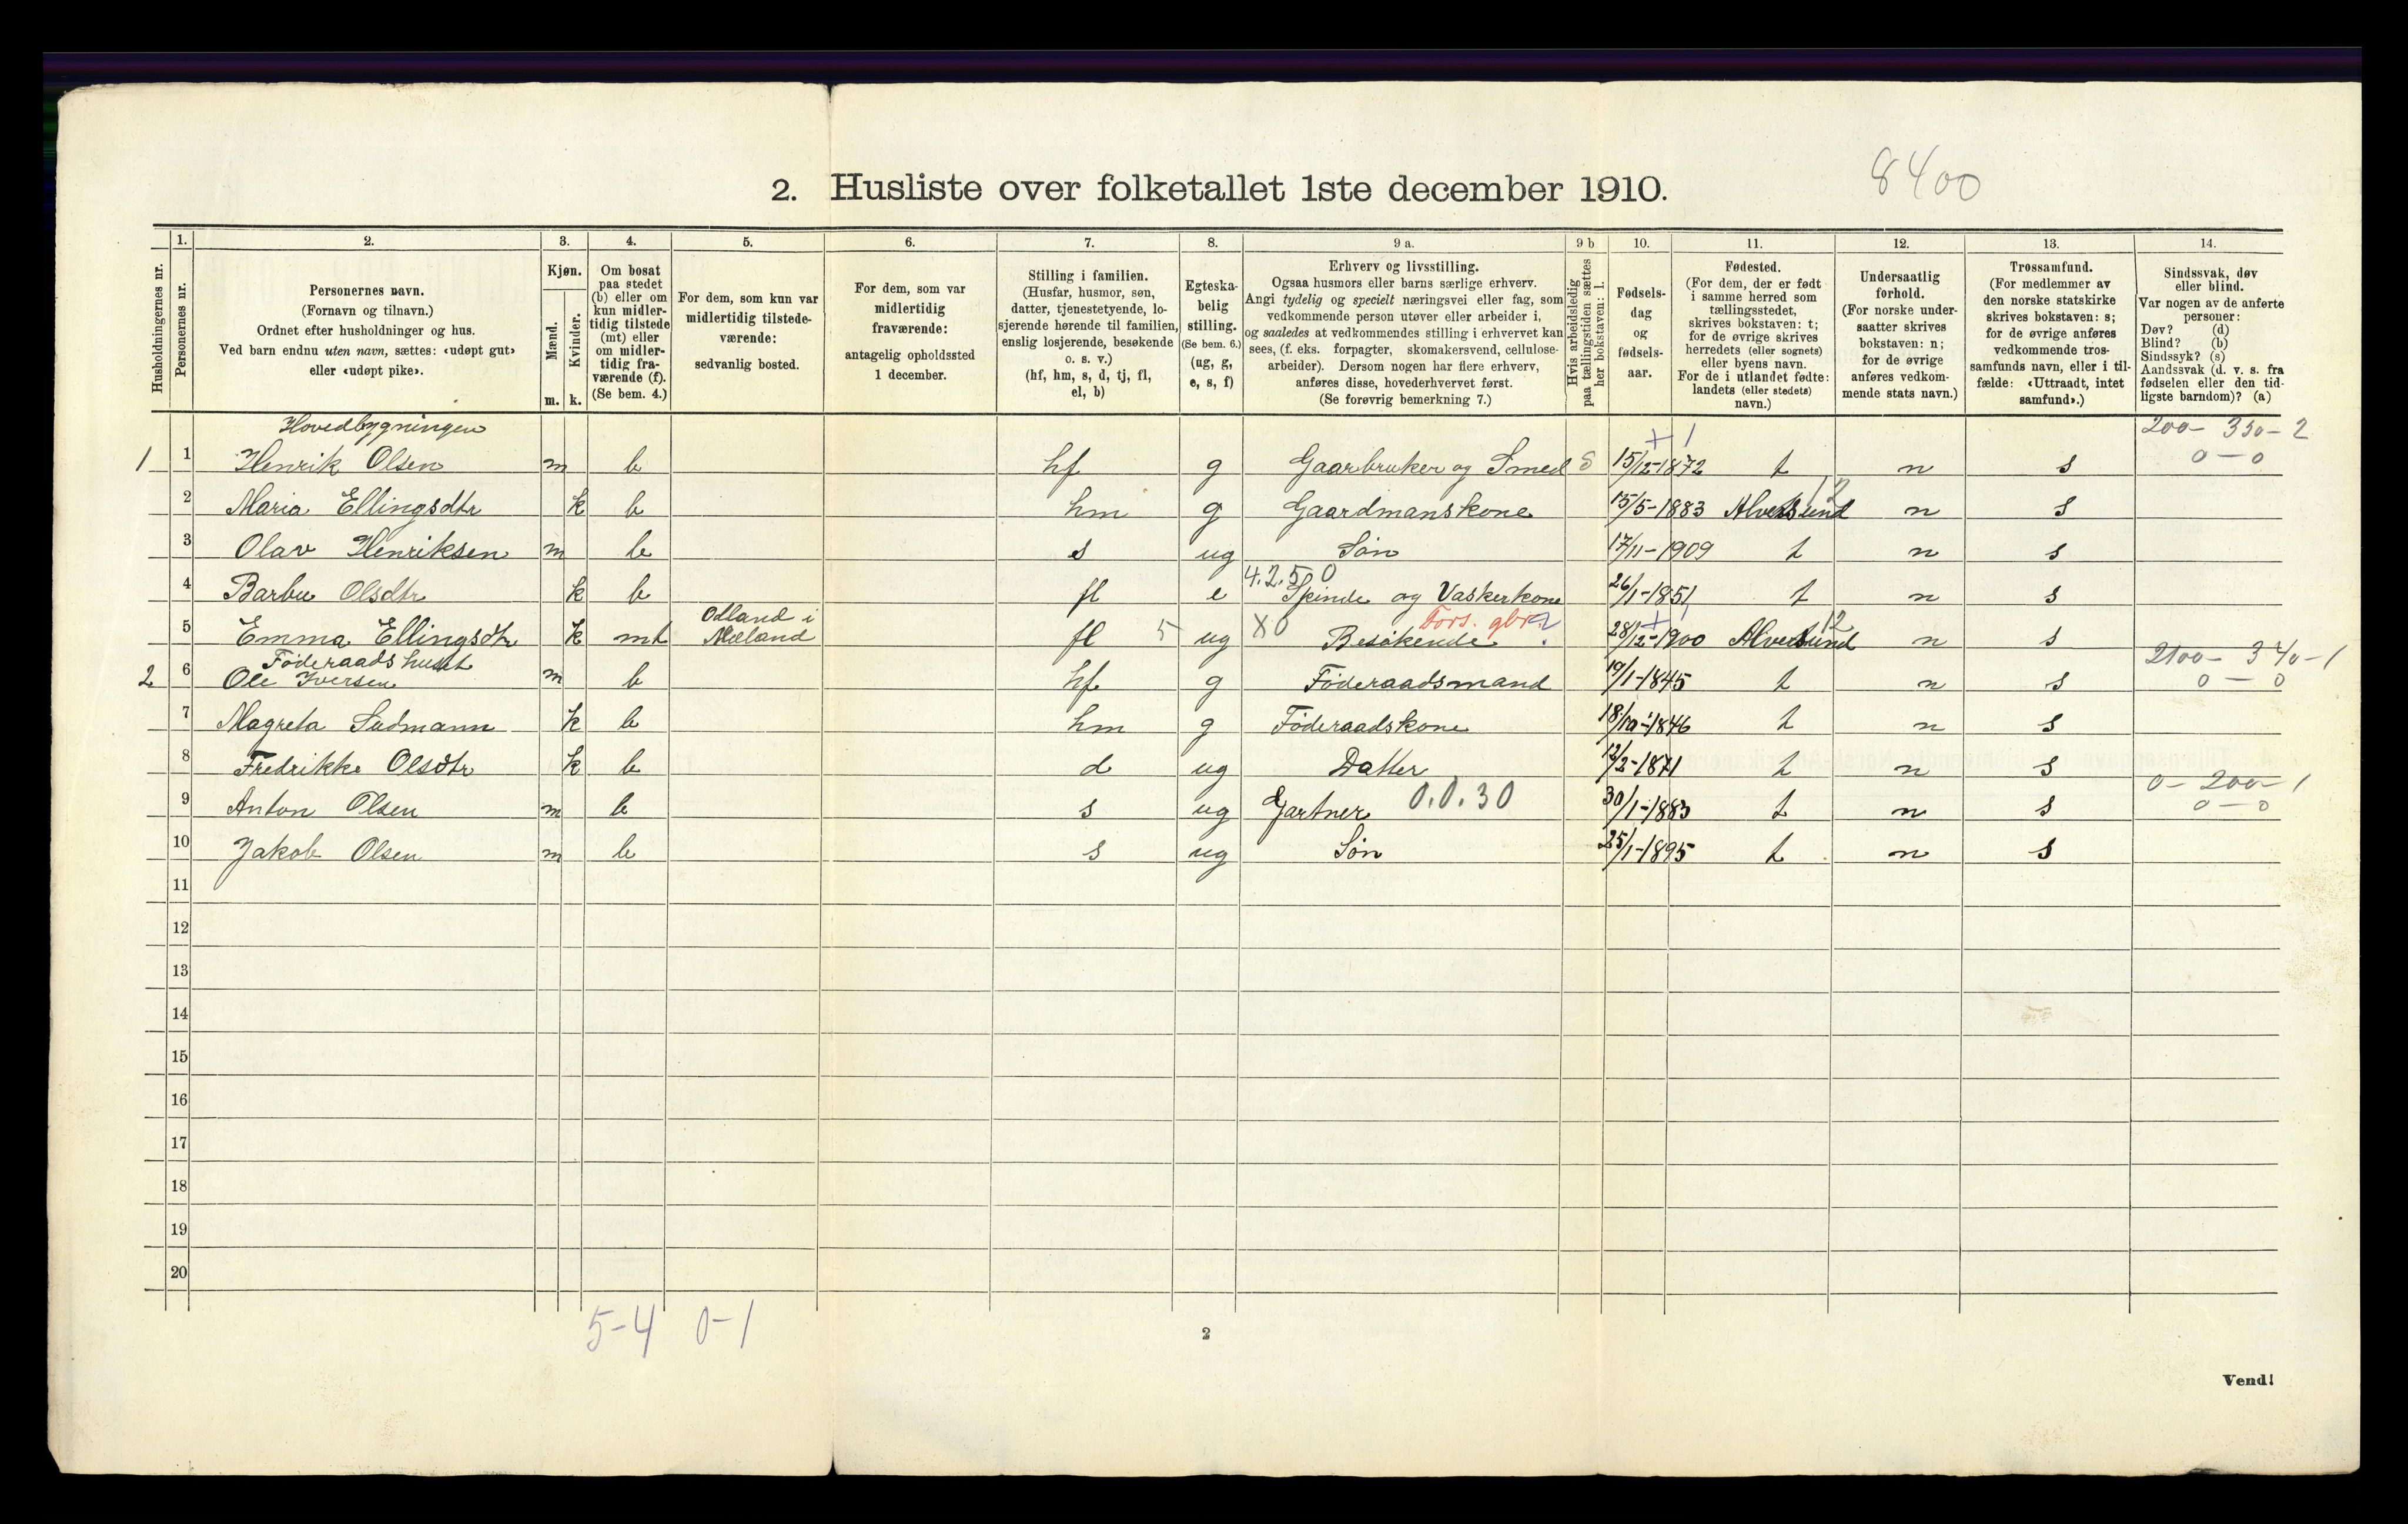 8400
2. Husliste over folketallet 1ste december 1910.
Husholdningernes nr.
1. Personernes nr.
2. Personernes navn.
(Fornavn og tilnavn.)
Ordnet efter husholdninger og hus.
Ved barn endnu uten navn, sættes: «udøpt gut»
eller «udøpt pike».
3. Kjøn.
Mænd. m.
Kvinder. k.
4. Om bosat
paa stedet
(b) eller om
kun midler-
tidig tilstede
(mt) eller
om midler-
tidig fra-
værende (f).
(Se bem. 4.)
5. For dem, som kun var
midlertidig tilstede-
værende:
sedvanlig bosted.
6. For dem, som var
midlertidig
fraværende:
antagelig opholdssted
1 december.
7. Stilling i familien.
(Husfar, husmor, søn,
datter, tjenestetyende, lo-
sjerende hørende til familien,
enslig losjerende, besøkende
o. s. v.)
(hf, hm, s, d, tj, fl,
el, b)
8. Egteska-
belig
stilling.
(Se bem. 6.)
(ug, g,
e, s, f)
9 a. Erhverv og livsstilling.
Ogsaa husmors eller barns særlige erhverv.
Angi tydelig og specielt næringsvei eller fag, som
vedkommende person utøver eller arbeider i,
og saaledes at vedkommendes stilling i erhvervet kan
sees, (f. eks. forpagter, skomakersvend, cellulose-
arbeider). Dersom nogen har flere erhverv,
anføres disse, hovederhvervet først.
(Se forøvrig bemerkning 7.)
9 b Hvis arbeidsledig
paa tællingstiden sættes
her bokstaven: l.
10. Fødsels-
dag
og
fødsels-
aar.
11. Fødested.
(For dem, der er født
i samme herred som
tællingsstedet,
skrives bokstaven: t;
for de øvrige skrives
herredets (eller sognets)
eller byens navn.
For de i utlandet fødte:
landets (eller stedets)
navn.)
12. Undersaatlig
forhold.
(For norske under-
saatter skrives
bokstaven: n;
for de øvrige
anføres vedkom-
mende stats navn.)
13. Trossamfund.
(For medlemmer av
den norske statskirke
skrives bokstaven: s;
for de øvrige anføres
vedkommende tros-
samfunds navn, eller i til-
fælde: «Uttraadt, intet
samfund».)
14. Sindssvak, døv
eller blind.
Var nogen av de anførte
personer:
Døv? (d)
Blind? (b)
Sindssyk? (s)
Aandssvak (d. v. s. fra
fødselen eller den tid-
ligste barndom)? (a)
Hovedbygningen + 1 200 - 350 - 2
1 1 Henrik Olsen m b hf g Gaarbruker og Smed 15/12-1872 t n s 0 - 0
2 Maria Ellingsdtr k b hm g Gaardmanskone 15/5-1883 Alversund 12 n s
3 Olav Henriksen m b s ug Søn 17/11-1909 t n s
4.2.5 0
4 Barbu Olsdtr k b fl e Spinde og Vaskerkone 26/1-1851 t n s
Odland i Fors. gbr. 2 + 1 12
5 Emma Ellingsdtr k mt Mæland fl 5 ug X0 Besøkende 28/12-1900 Alversund n s
Føderaadshuset 2100 - 340 - 1
2 6 Ole Iversen m b hf g Føderaadsmand 19/1-1845 t n s 0 - 0
7 Magreta Sudmann k b hm g Føderaadskone 18/10-1846 t n s
8 Fredrikke Olsdtr k b d ug Datter 12/2-1871 t n s
0 - 200 - 1
9 Anton Olsen m b s ug Gartner 0.0.30 30/1-1883 t n s 0 - 0
10 Jakob Olsen m b s ug Søn 25/1-1895 t n s
11
12
13
14
15
16
17
18
19
20
5-4 0-1
2
Vend!